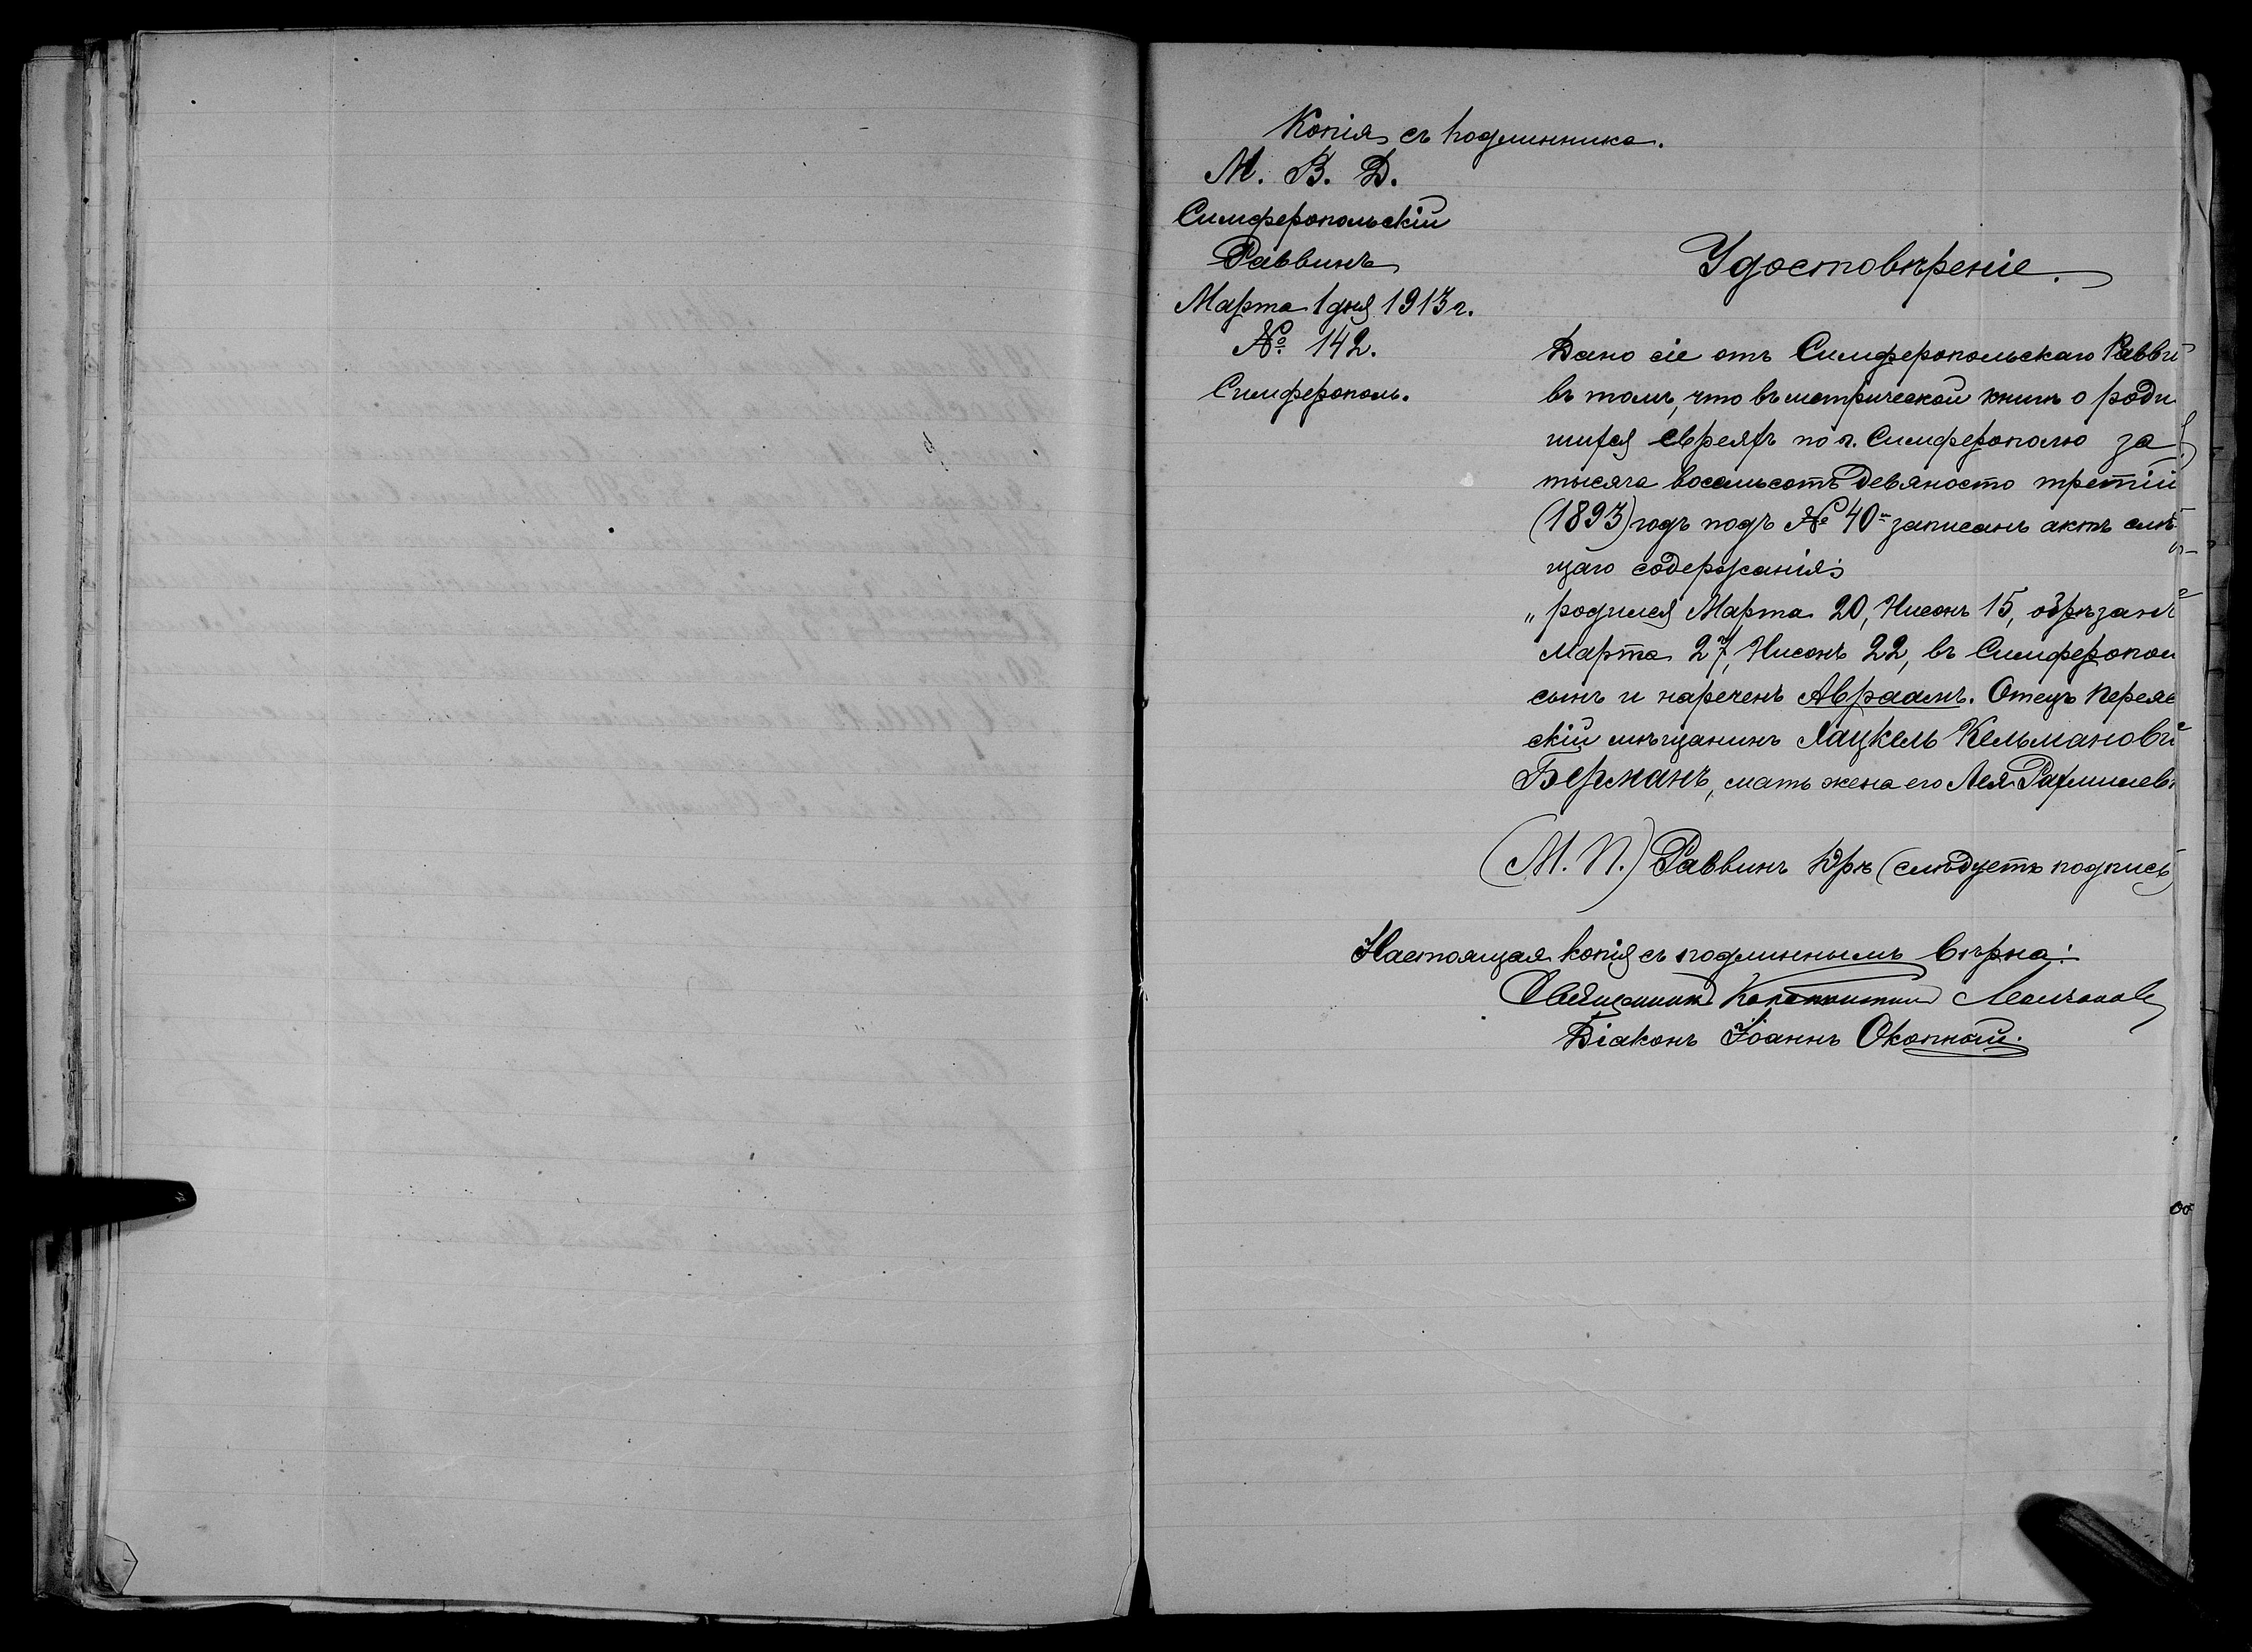 Копія съ подлинника.
М. В. Д.
Симферопольскій
Раввинъ
Марта 1 дня 1913 г.
№ 142.
Симферополь.
Удостовѣреніе.
Дано сіе отъ Симферопольскаго Равви
въ томъ, что въ метрической книгѣ о роди
шихся евреяхъ по г. Симферополю за
тысяча восемьсотъ девяносто третій
(1893) годъ подъ № 40-м записанъ актъ слѣ
щаго содержанія:
„родился Марта 20, Нисонъ 15, обрѣзанъ
Марта 27, Нисонъ 22, въ Симферопол
сынъ и нареченъ Авраамъ. Отецъ Переяс
скій мѣщанинъ Хацкель Кельманови
Берманъ, мать жена его Лея Рахмилев
(М. П.) Раввинъ (слѣдуетъ подпись)
Настоящая копія съ подлиннымъ вѣрна:
Священник
Діаконъ Іоаннъ Окопный.